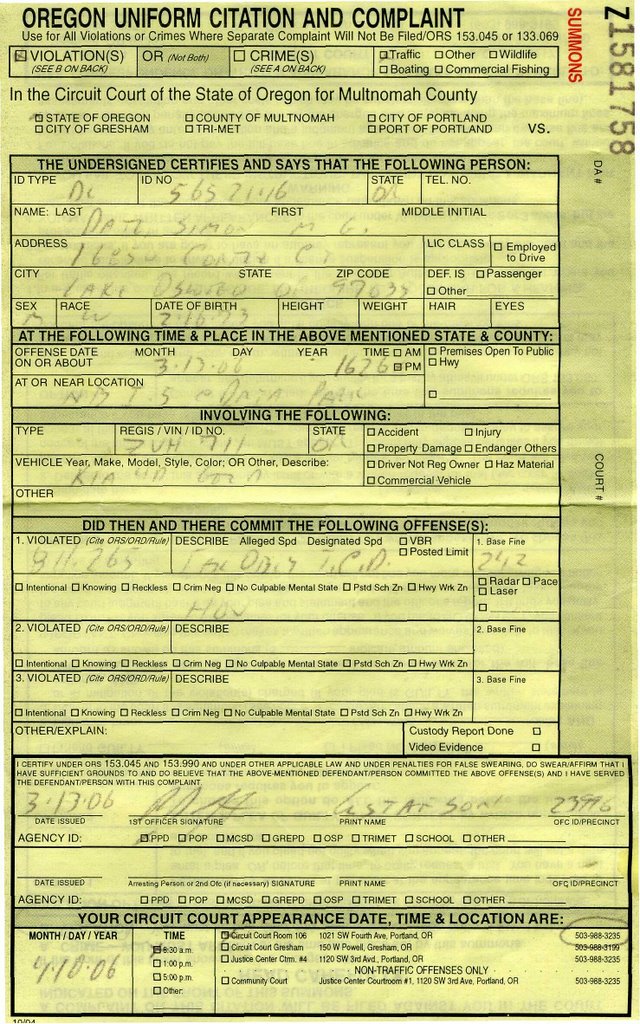 OREGON UNIFORM CITATION AND COMPLAINT
Use for All Violations or Crimes Where Separate Complaint Will Not Be Filed/ORS 153.045 or 133.069
SUMMONS
Z1581758
VIOLATION(S) OR (Not Both) CRIME(S) Traffic Other Wildlife
(SEE B ON BACK) (SEE A ON BACK) Boating Commercial Fishing
In the Circuit Court of the State of Oregon for Multnomah County
STATE OF OREGON COUNTY OF MULTNOMAH CITY OF PORTLAND
CITY OF GRESHAM TRI-MET PORT OF PORTLAND VS.
DA #
THE UNDERSIGNED CERTIFIES AND SAYS THAT THE FOLLOWING PERSON:
ID TYPE ID NO STATE TEL. NO.
OR
NAME: LAST FIRST MIDDLE INITIAL
SIMON M G.
ADDRESS LIC CLASS Employed to Drive
CITY STATE ZIP CODE DEF. IS Passenger
Other
LAKE OSWEGO OR
SEX RACE DATE OF BIRTH HEIGHT WEIGHT HAIR EYES
M W
AT THE FOLLOWING TIME & PLACE IN THE ABOVE MENTIONED STATE & COUNTY:
OFFENSE DATE MONTH DAY YEAR TIME AM Premises Open To Public
ON OR ABOUT 3-13-06 1626 PM Hwy
AT OR NEAR LOCATION
NB I-5
INVOLVING THE FOLLOWING:
TYPE REGIS / VIN / ID NO. STATE Accident Injury
ZVH 711 OR Property Damage Endanger Others
VEHICLE Year, Make, Model, Style, Color; OR Other, Describe: Driver Not Reg Owner Haz Material
KIA 4D Commercial Vehicle
OTHER
COURT #
DID THEN AND THERE COMMIT THE FOLLOWING OFFENSE(S):
1. VIOLATED (Cite ORS/ORD/Rule) DESCRIBE Alleged Spd Designated Spd VBR 1. Base Fine
Posted Limit
811.265 FAIL OBEY T.C.D. 242
Intentional Knowing Reckless Crim Neg No Culpable Mental State Pstd Sch Zn Hwy Wrk Zn Radar Pace
Laser
HOV
2. VIOLATED (Cite ORS/ORD/Rule) DESCRIBE 2. Base Fine
Intentional Knowing Reckless Crim Neg No Culpable Mental State Pstd Sch Zn Hwy Wrk Zn
3. VIOLATED (Cite ORS/ORD/Rule) DESCRIBE 3. Base Fine
Intentional Knowing Reckless Crim Neg No Culpable Mental State Pstd Sch Zn Hwy Wrk Zn
OTHER/EXPLAIN: Custody Report Done
Video Evidence
I CERTIFY UNDER ORS 153.045 AND 153.990 AND UNDER OTHER APPLICABLE LAW AND UNDER PENALTIES FOR FALSE SWEARING, DO SWEAR/AFFIRM THAT I
HAVE SUFFICIENT GROUNDS TO AND DO BELIEVE THAT THE ABOVE-MENTIONED DEFENDANT/PERSON COMMITTED THE ABOVE OFFENSE(S) AND I HAVE SERVED
THE DEFENDANT/PERSON WITH THIS COMPLAINT.
3-13-06 GUSTAFSON
DATE ISSUED 1ST OFFICER SIGNATURE PRINT NAME OFC ID/PRECINCT
AGENCY ID: PPD POP MCSD GREPD OSP TRIMET SCHOOL OTHER
DATE ISSUED Arresting Person or 2nd Ofc (if necessary) SIGNATURE PRINT NAME OFC ID/PRECINCT
AGENCY ID: PPD POP MCSD GREPD OSP TRIMET SCHOOL OTHER
YOUR CIRCUIT COURT APPEARANCE DATE, TIME & LOCATION ARE:
MONTH / DAY / YEAR TIME Circuit Court Room 106 1021 SW Fourth Ave, Portland, OR 503-988-3235
8:30 a.m. Circuit Court Gresham 150 W Powell, Gresham, OR 503-988-3199
4-10-06 1:00 p.m. Justice Center Ctrm. #4 1120 SW 3rd Ave., Portland, OR 503-988-3235
5:00 p.m. NON-TRAFFIC OFFENSES ONLY
Other: Community Court Justice Center Courtroom #1, 1120 SW 3rd Ave, Portland, OR 503-988-3235
10/04